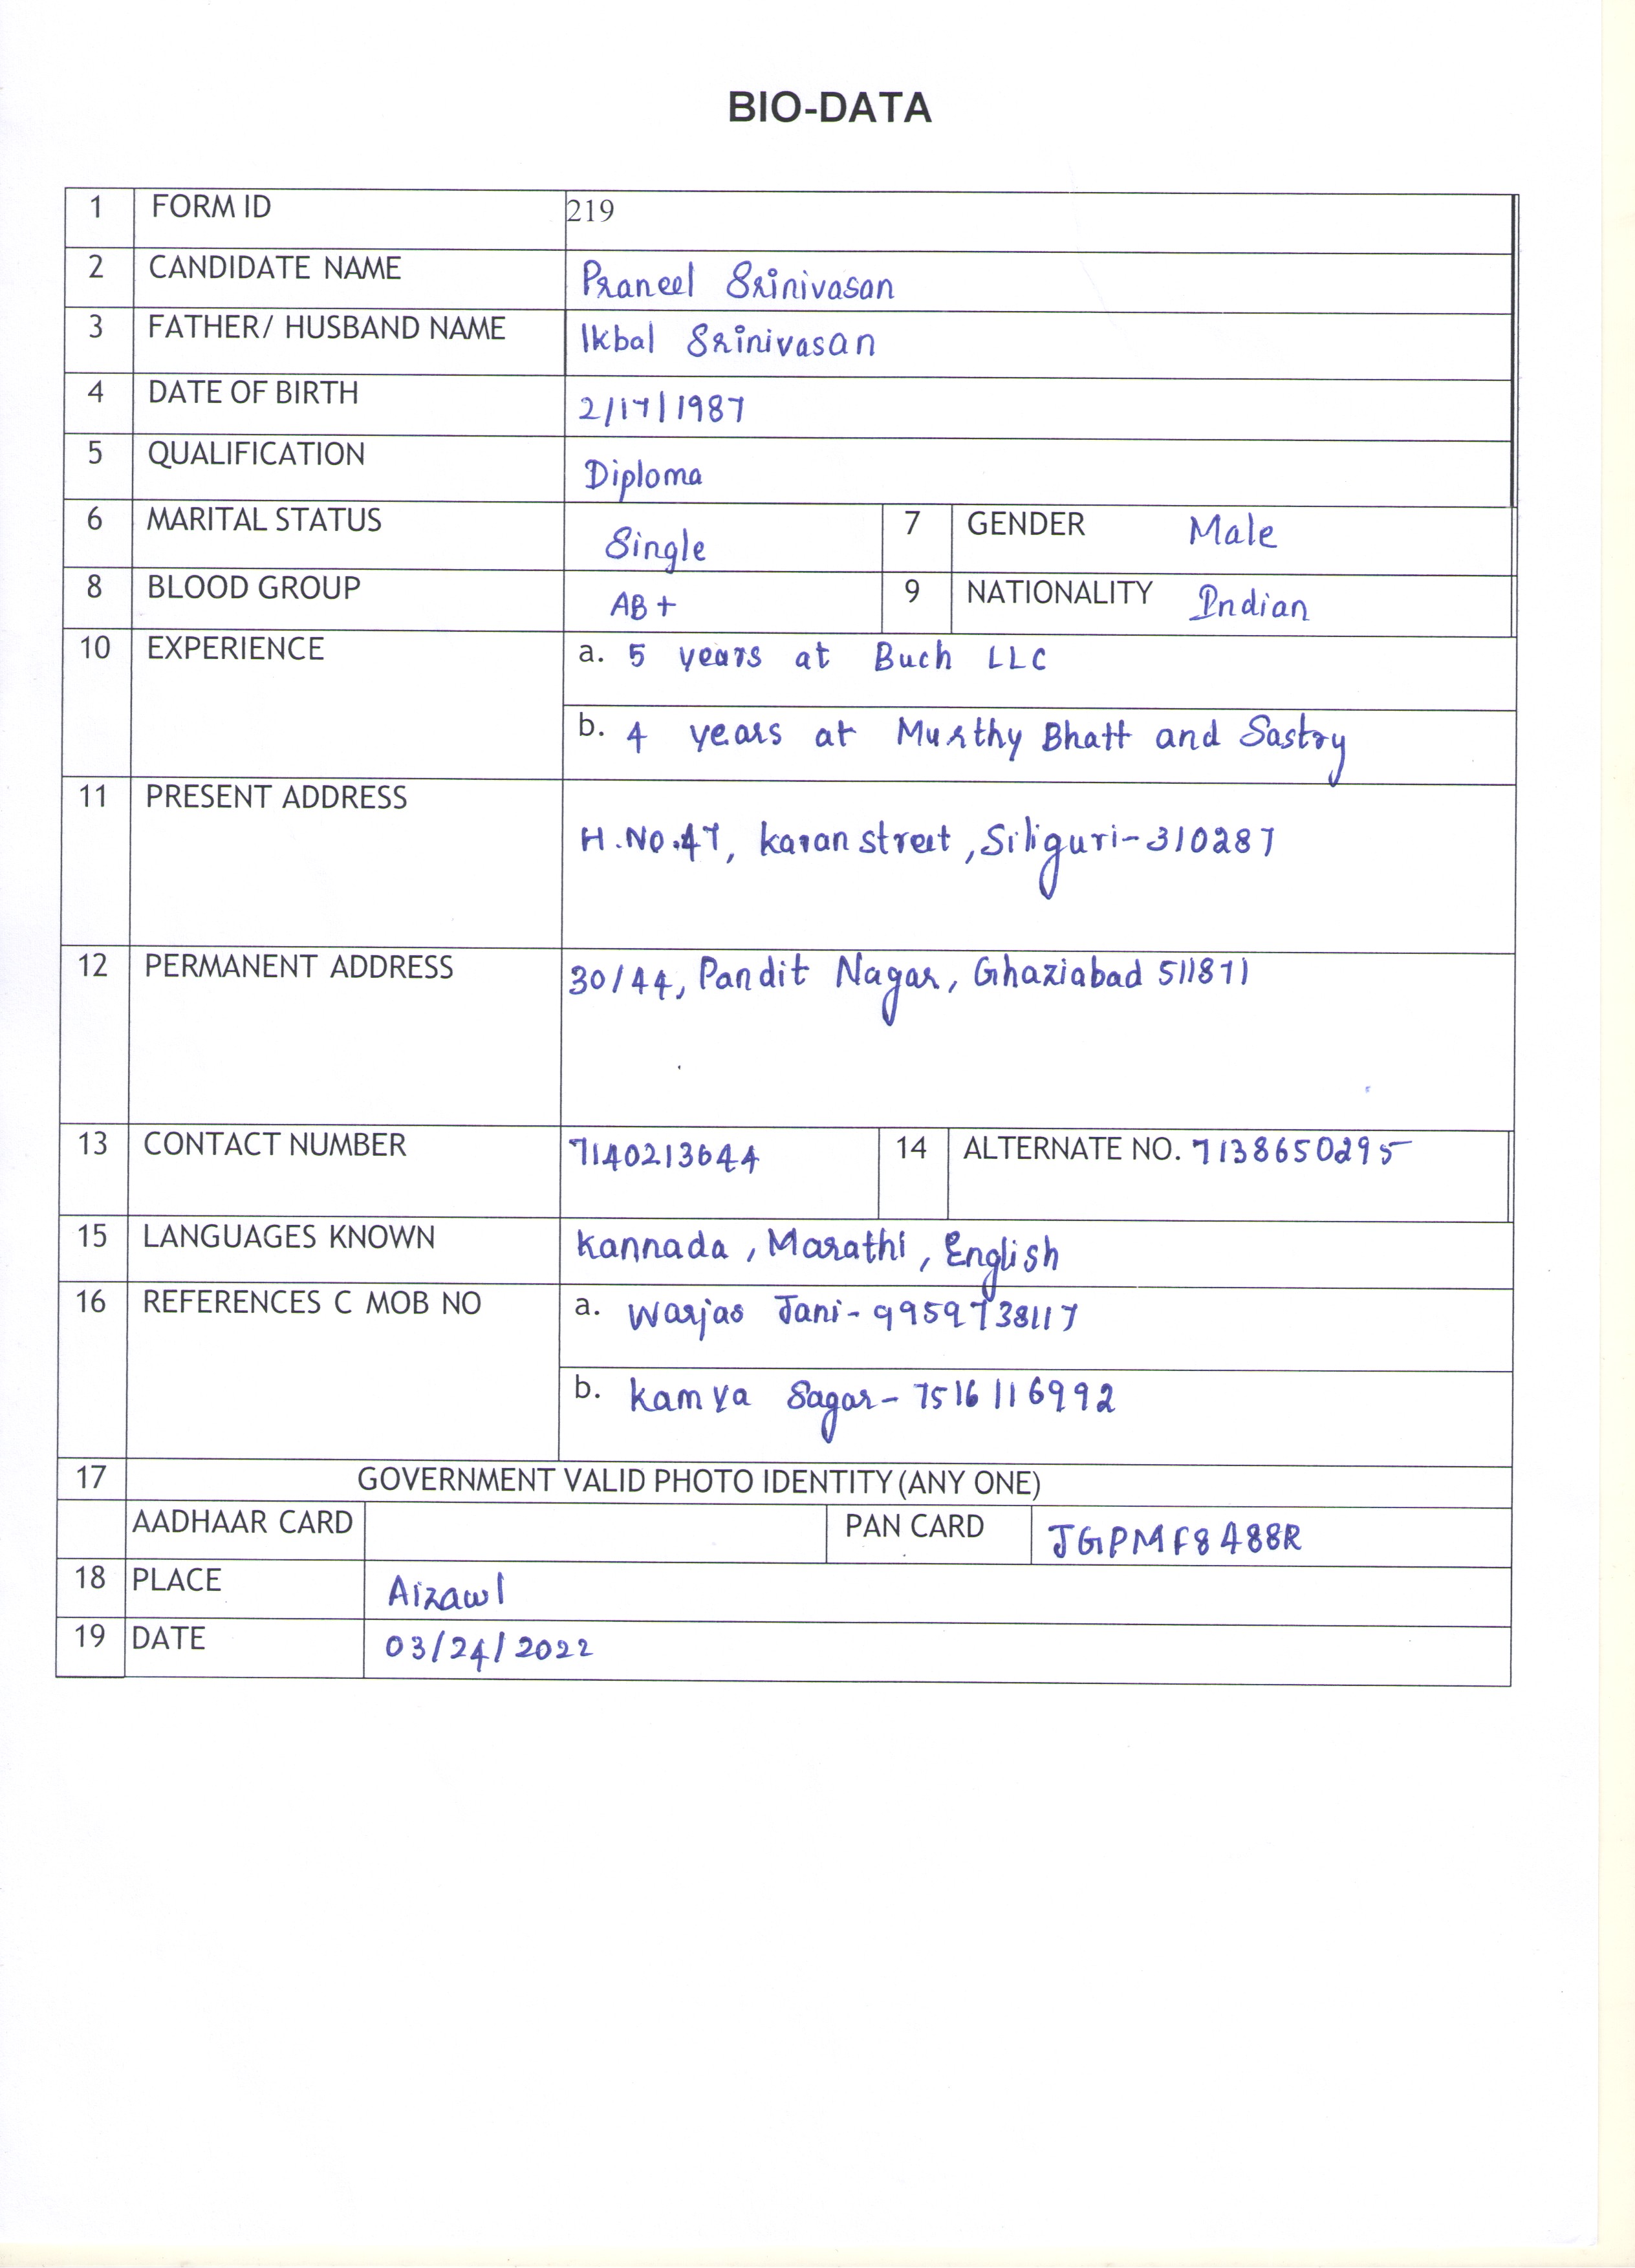 BIO-DATA
1 FORM ID 219
2 CANDIDATE NAME Praneel Srinivasan
3 FATHER/ HUSBAND NAME Ikbal Srinivasan
4 DATE OF BIRTH 2/17/1987
5 QUALIFICATION Diploma
6 MARITAL STATUS Single 7 GENDER Male
8 BLOOD GROUP AB+ 9 NATIONALITY Indian
10 EXPERIENCE a. 5 years at Buch LLC
b. 4 years at Murthy Bhatt and Sastry
11 PRESENT ADDRESS
H.No.47, karan street, Siliguri-310287
12 PERMANENT ADDRESS 30/44, Pandit Nagar, Ghaziabad 511871
13 CONTACT NUMBER 7140213644 14 ALTERNATE NO. 7138650295
15 LANGUAGES KNOWN kannada, Marathi, English
16 REFERENCES C MOB NO a. Warjas Jani-9959738117
b. kamya Sagar-7516116992
17 GOVERNMENT VALID PHOTO IDENTITY (ANY ONE)
AADHAAR CARD PAN CARD JGPMF8488R
18 PLACE Aizawl
19 DATE 03/24/2022